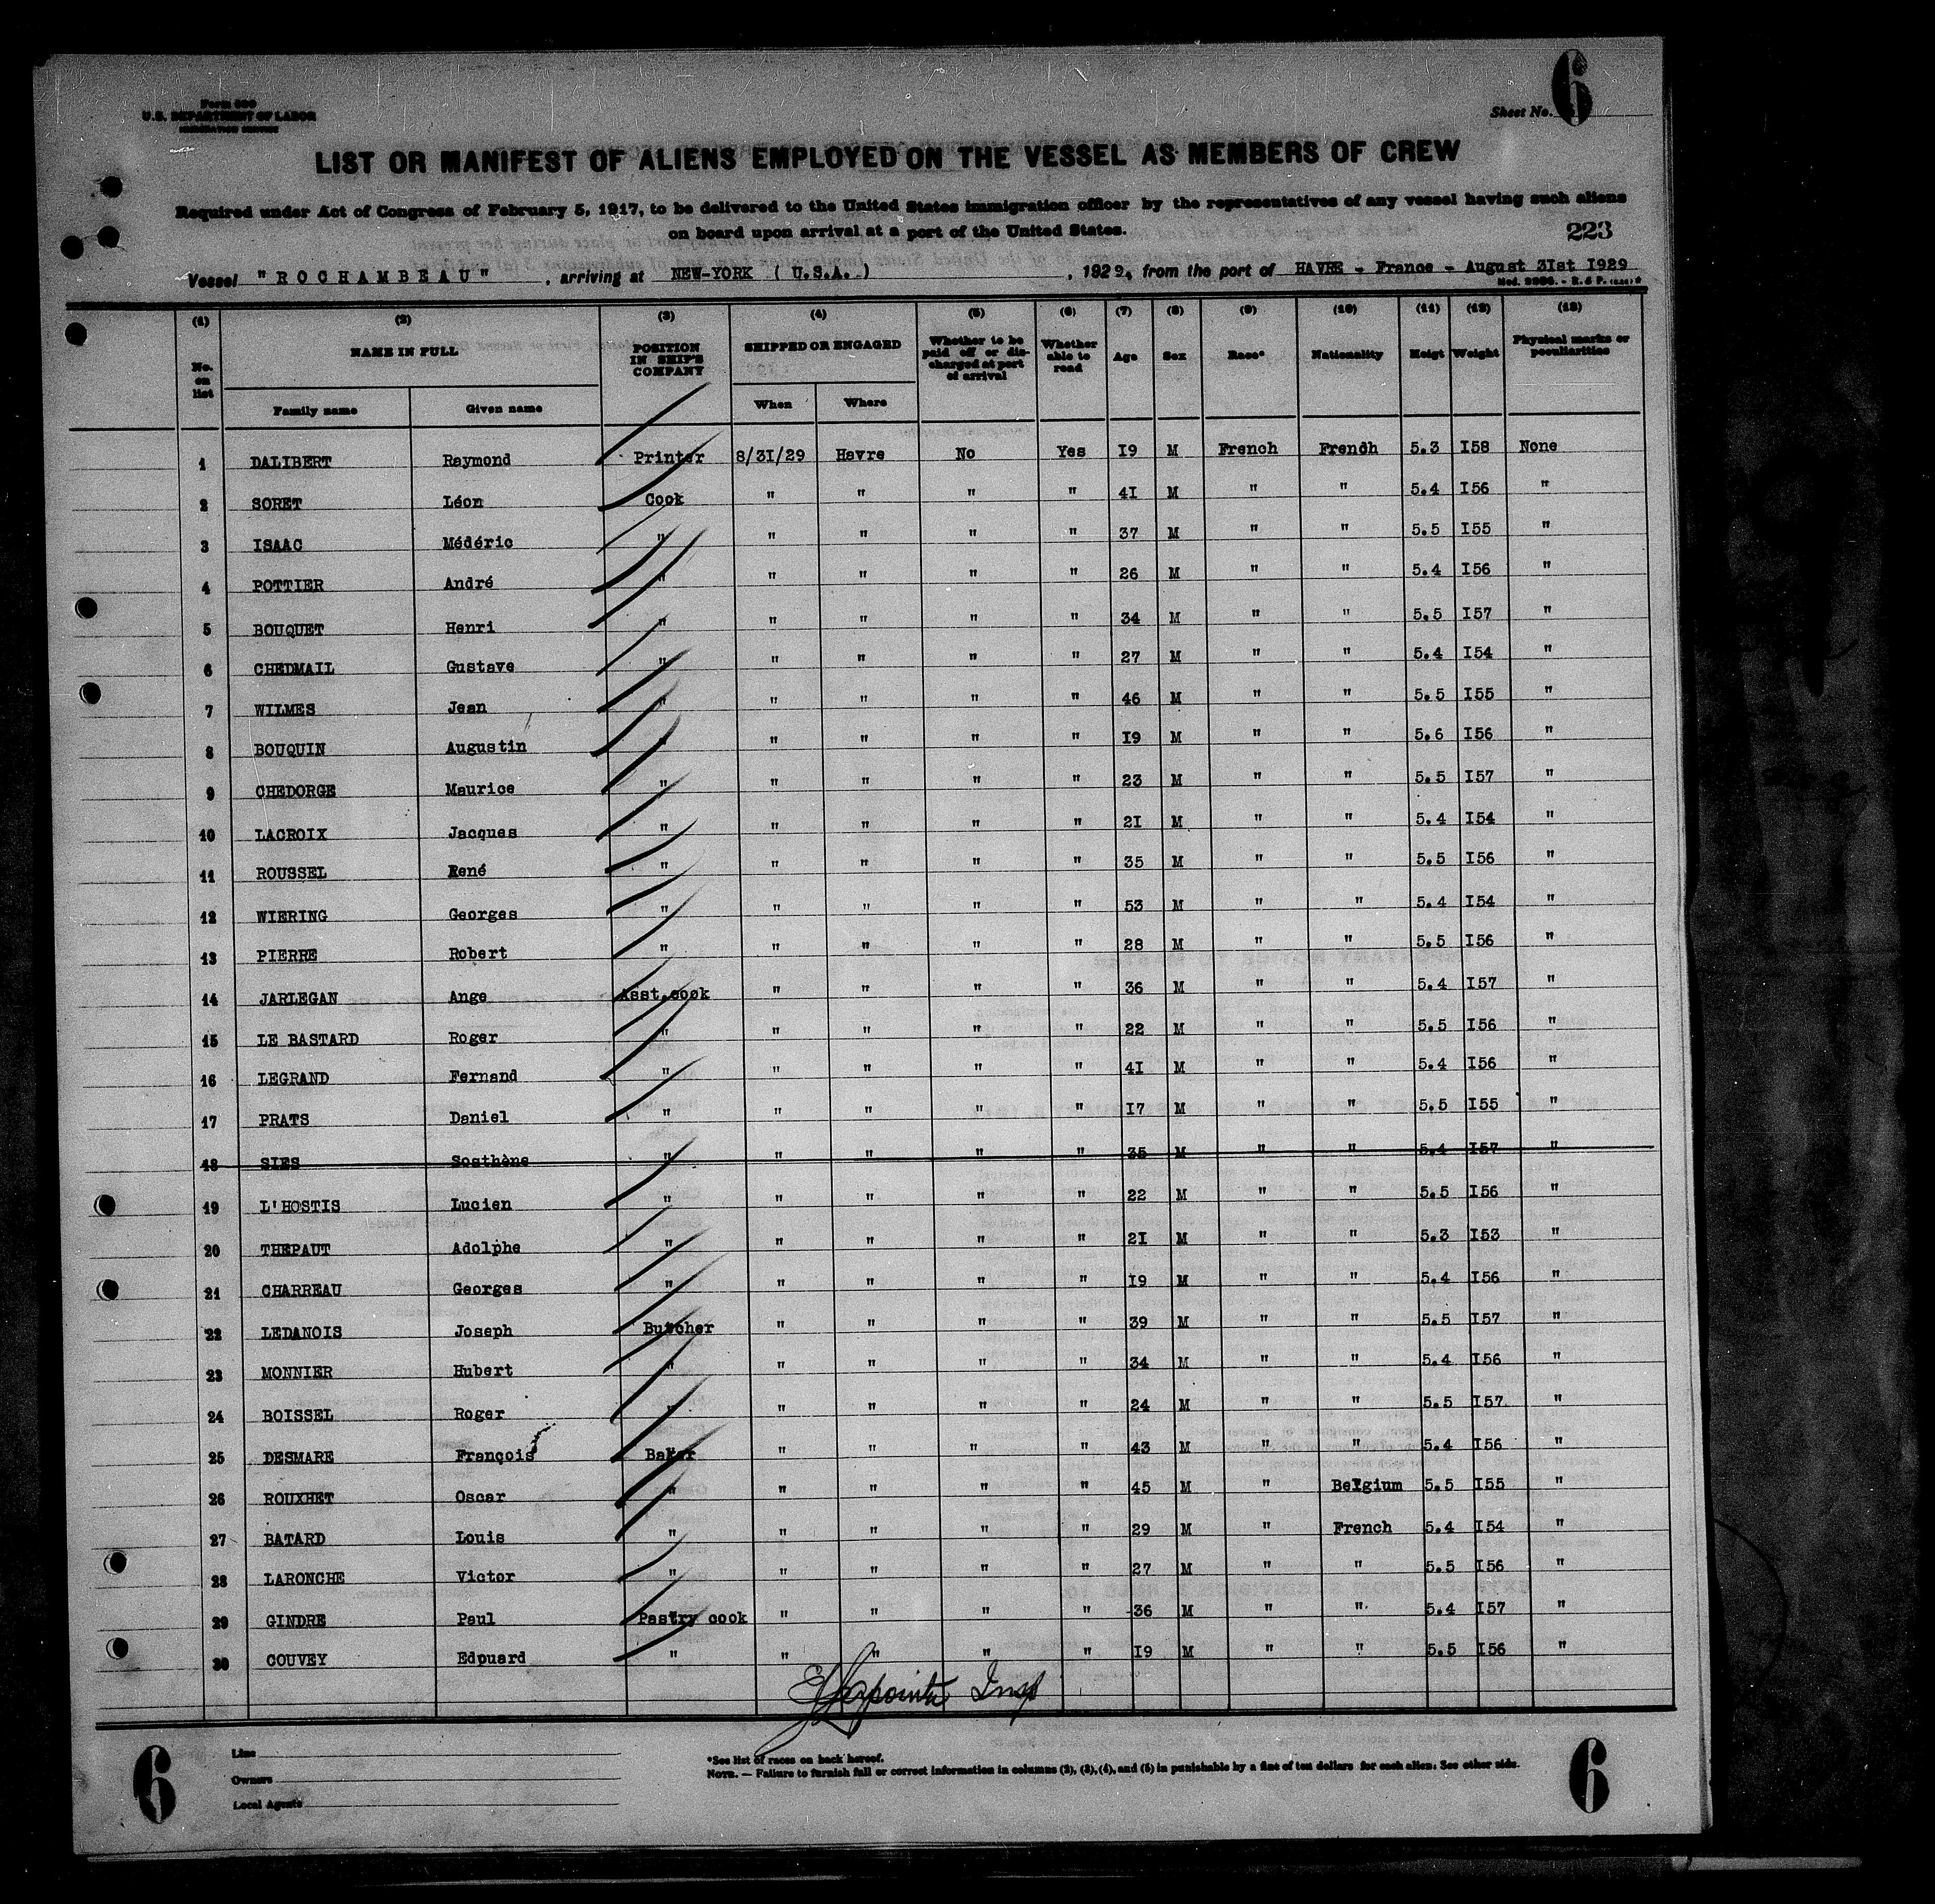 Form 680
U.S. DEPARTMENT OF LABOR
IMMIGRATION SERVICE
Sheet No. 6
LIST OR MANIFEST OF ALIENS EMPLOYED ON THE VESSEL AS MEMBERS OF CREW
Required under Act of Congress of February 5, 1917, to be delivered to the United States immigration officer by the representatives of any vessel having such aliens
on board upon arrival at a port of the United States.
223
Vessel "ROCHAMBEAU", arriving at NEW-YORK ( U.S.A. ), 1929, from the port of HAVRE - France - August 3Ist I929
(1) (2) (3) (4) (5) (6) (7) (8) (9) (10) (11) (12) (13)
No. on list NAME IN FULL POSITION IN SHIP'S COMPANY SHIPPED OR ENGAGED Whether to be paid off or discharged at port of arrival Whether able to read Age Sex Race* Nationality Heigt Weight Physical marks or peculiarities
Family name Given name When Where
1 DALIBERT Raymond Printer 8/3I/29 Havre No Yes I9 M French Frendh 5.3 I58 None
2 SORET Léon Cook " " " " 4I M " " 5.4 I56 "
3 ISAAC Médéric " " " " " 37 M " " 5.5 I55 "
4 POTTIER André " " " " " 26 M " " 5.4 I56 "
5 BOUQUET Henri " " " " " 34 M " " 5.5 I57 "
6 CHEDMAIL Gustave " " " " " 27 M " " 5.4 I54 "
7 WILMES Jean " " " " " 46 M " " 5.5 I55 "
8 BOUQUIN Augustin " " " " " I9 M " " 5.6 I56 "
9 CHEDORGE Maurice " " " " " 23 M " " 5.5 I57 "
10 LACROIX Jacques " " " " " 2I M " " 5.4 I54 "
11 ROUSSEL René " " " " " 35 M " " 5.5 I56 "
12 WIERING Georges " " " " " 53 M " " 5.4 I54 "
13 PIERRE Robert " " " " " 28 M " " 5.5 I56 "
14 JARLEGAN Ange Asst.cook " " " " 36 M " " 5.4 I57 "
15 LE BASTARD Roger " " " " " 22 M " " 5.5 I56 "
16 LEGRAND Fernand " " " " " 4I M " " 5.4 I56 "
17 PRATS Daniel " " " " " I7 M " " 5.5 I55 "
18 SIES Sosthène " " " " " 35 M " " 5.4 I57 "
19 L'HOSTIS Lucien " " " " " 22 M " " 5.5 I56 "
20 THEPAUT Adolphe " " " " " 2I M " " 5.3 I53 "
21 CHARREAU Georges " " " " " I9 M " " 5.4 I56 "
22 LEDANOIS Joseph Butcher " " " " 39 M " " 5.5 I57 "
23 MONNIER Hubert " " " " " 34 M " " 5.4 I56 "
24 BOISSEL Roger " " " " " 24 M " " 5.5 I57 "
25 DESMARE François Baker " " " " 43 M " " 5.4 I56 "
26 ROUXHET Oscar " " " " " 45 M " Belgium 5.5 I55 "
27 BATARD Louis " " " " " 29 M " French 5.4 I54 "
28 LARONCHE Victor " " " " " 27 M " " 5.5 I56 "
29 GINDRE Paul Pastry cook " " " " 36 M " " 5.4 I57 "
30 COUVEY Edpuard " " " " " I9 M " " 5.5 I56 "
Lapointe Insp
6
Line
Owners
Local Agents
*See list of races on back hereof.
NOTE. — Failure to furnish full or correct information in columns (2), (3), (4), and (5) in punishable by a fine of ten dollars for each alien. See other side.
6